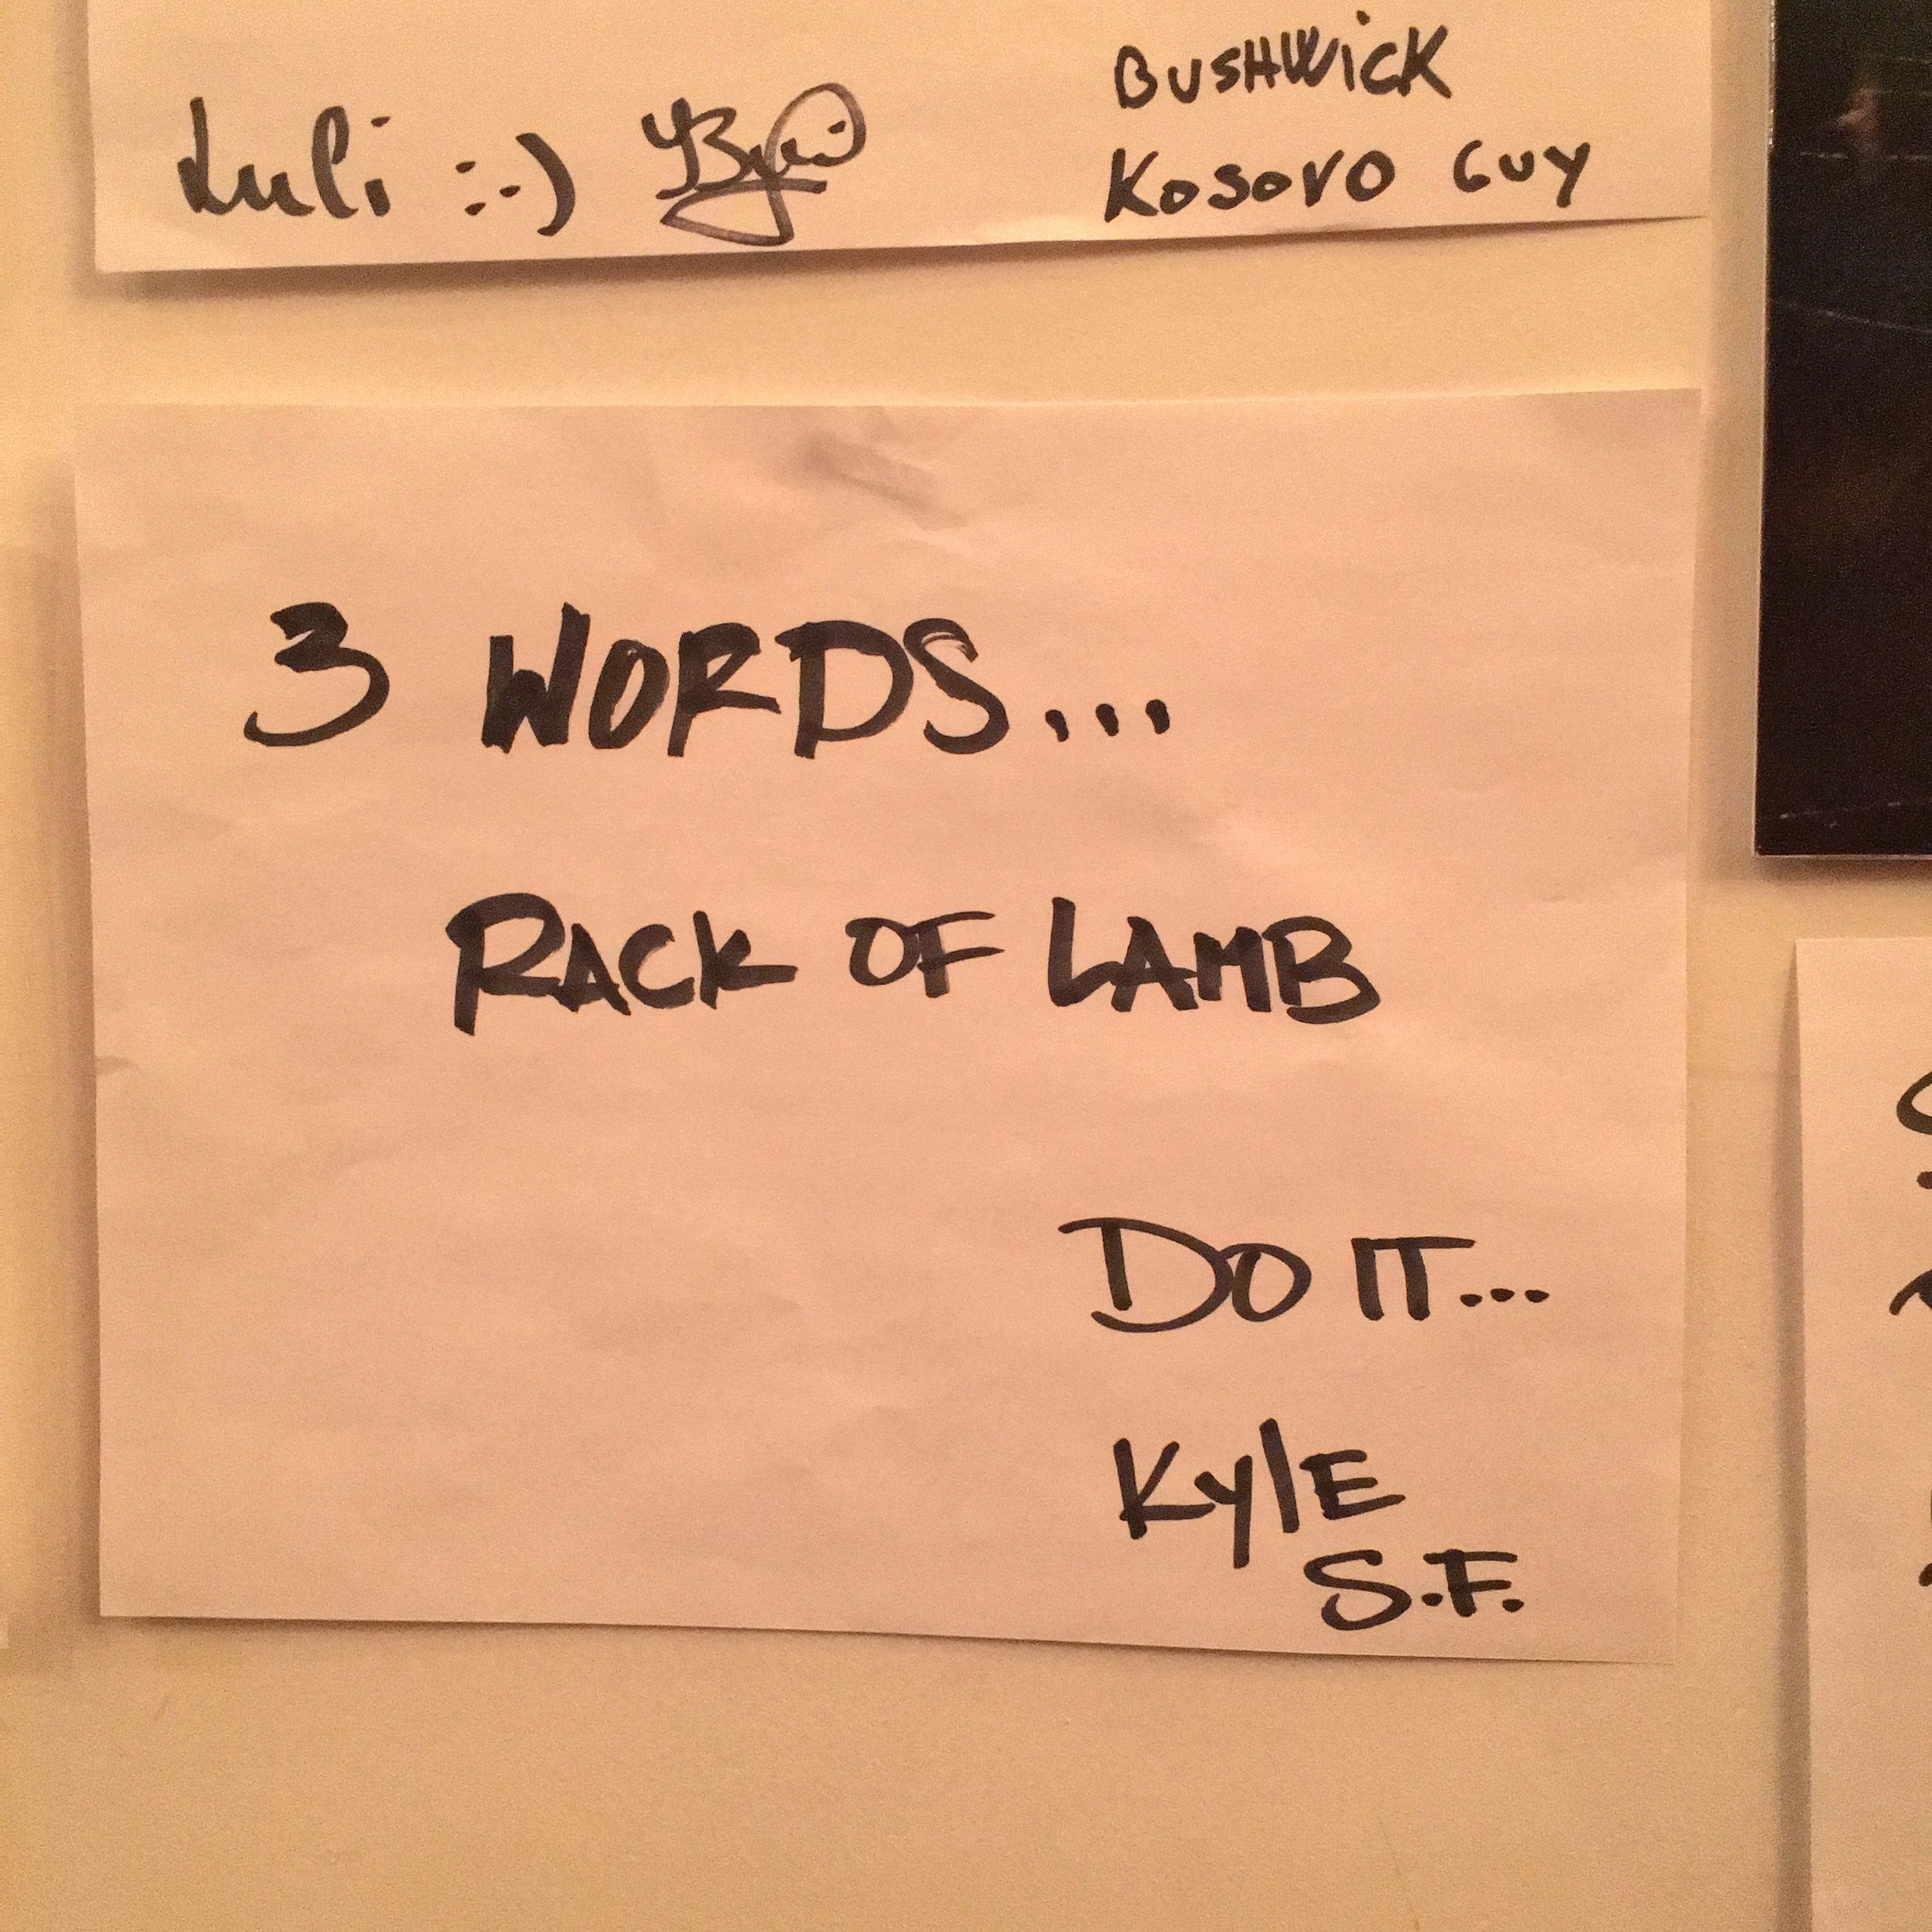 Luli :-)
BUSHWICK
KOSOVO GUY
3 WORDS...
RACK OF LAMB
DO IT...
KylE
S.F.